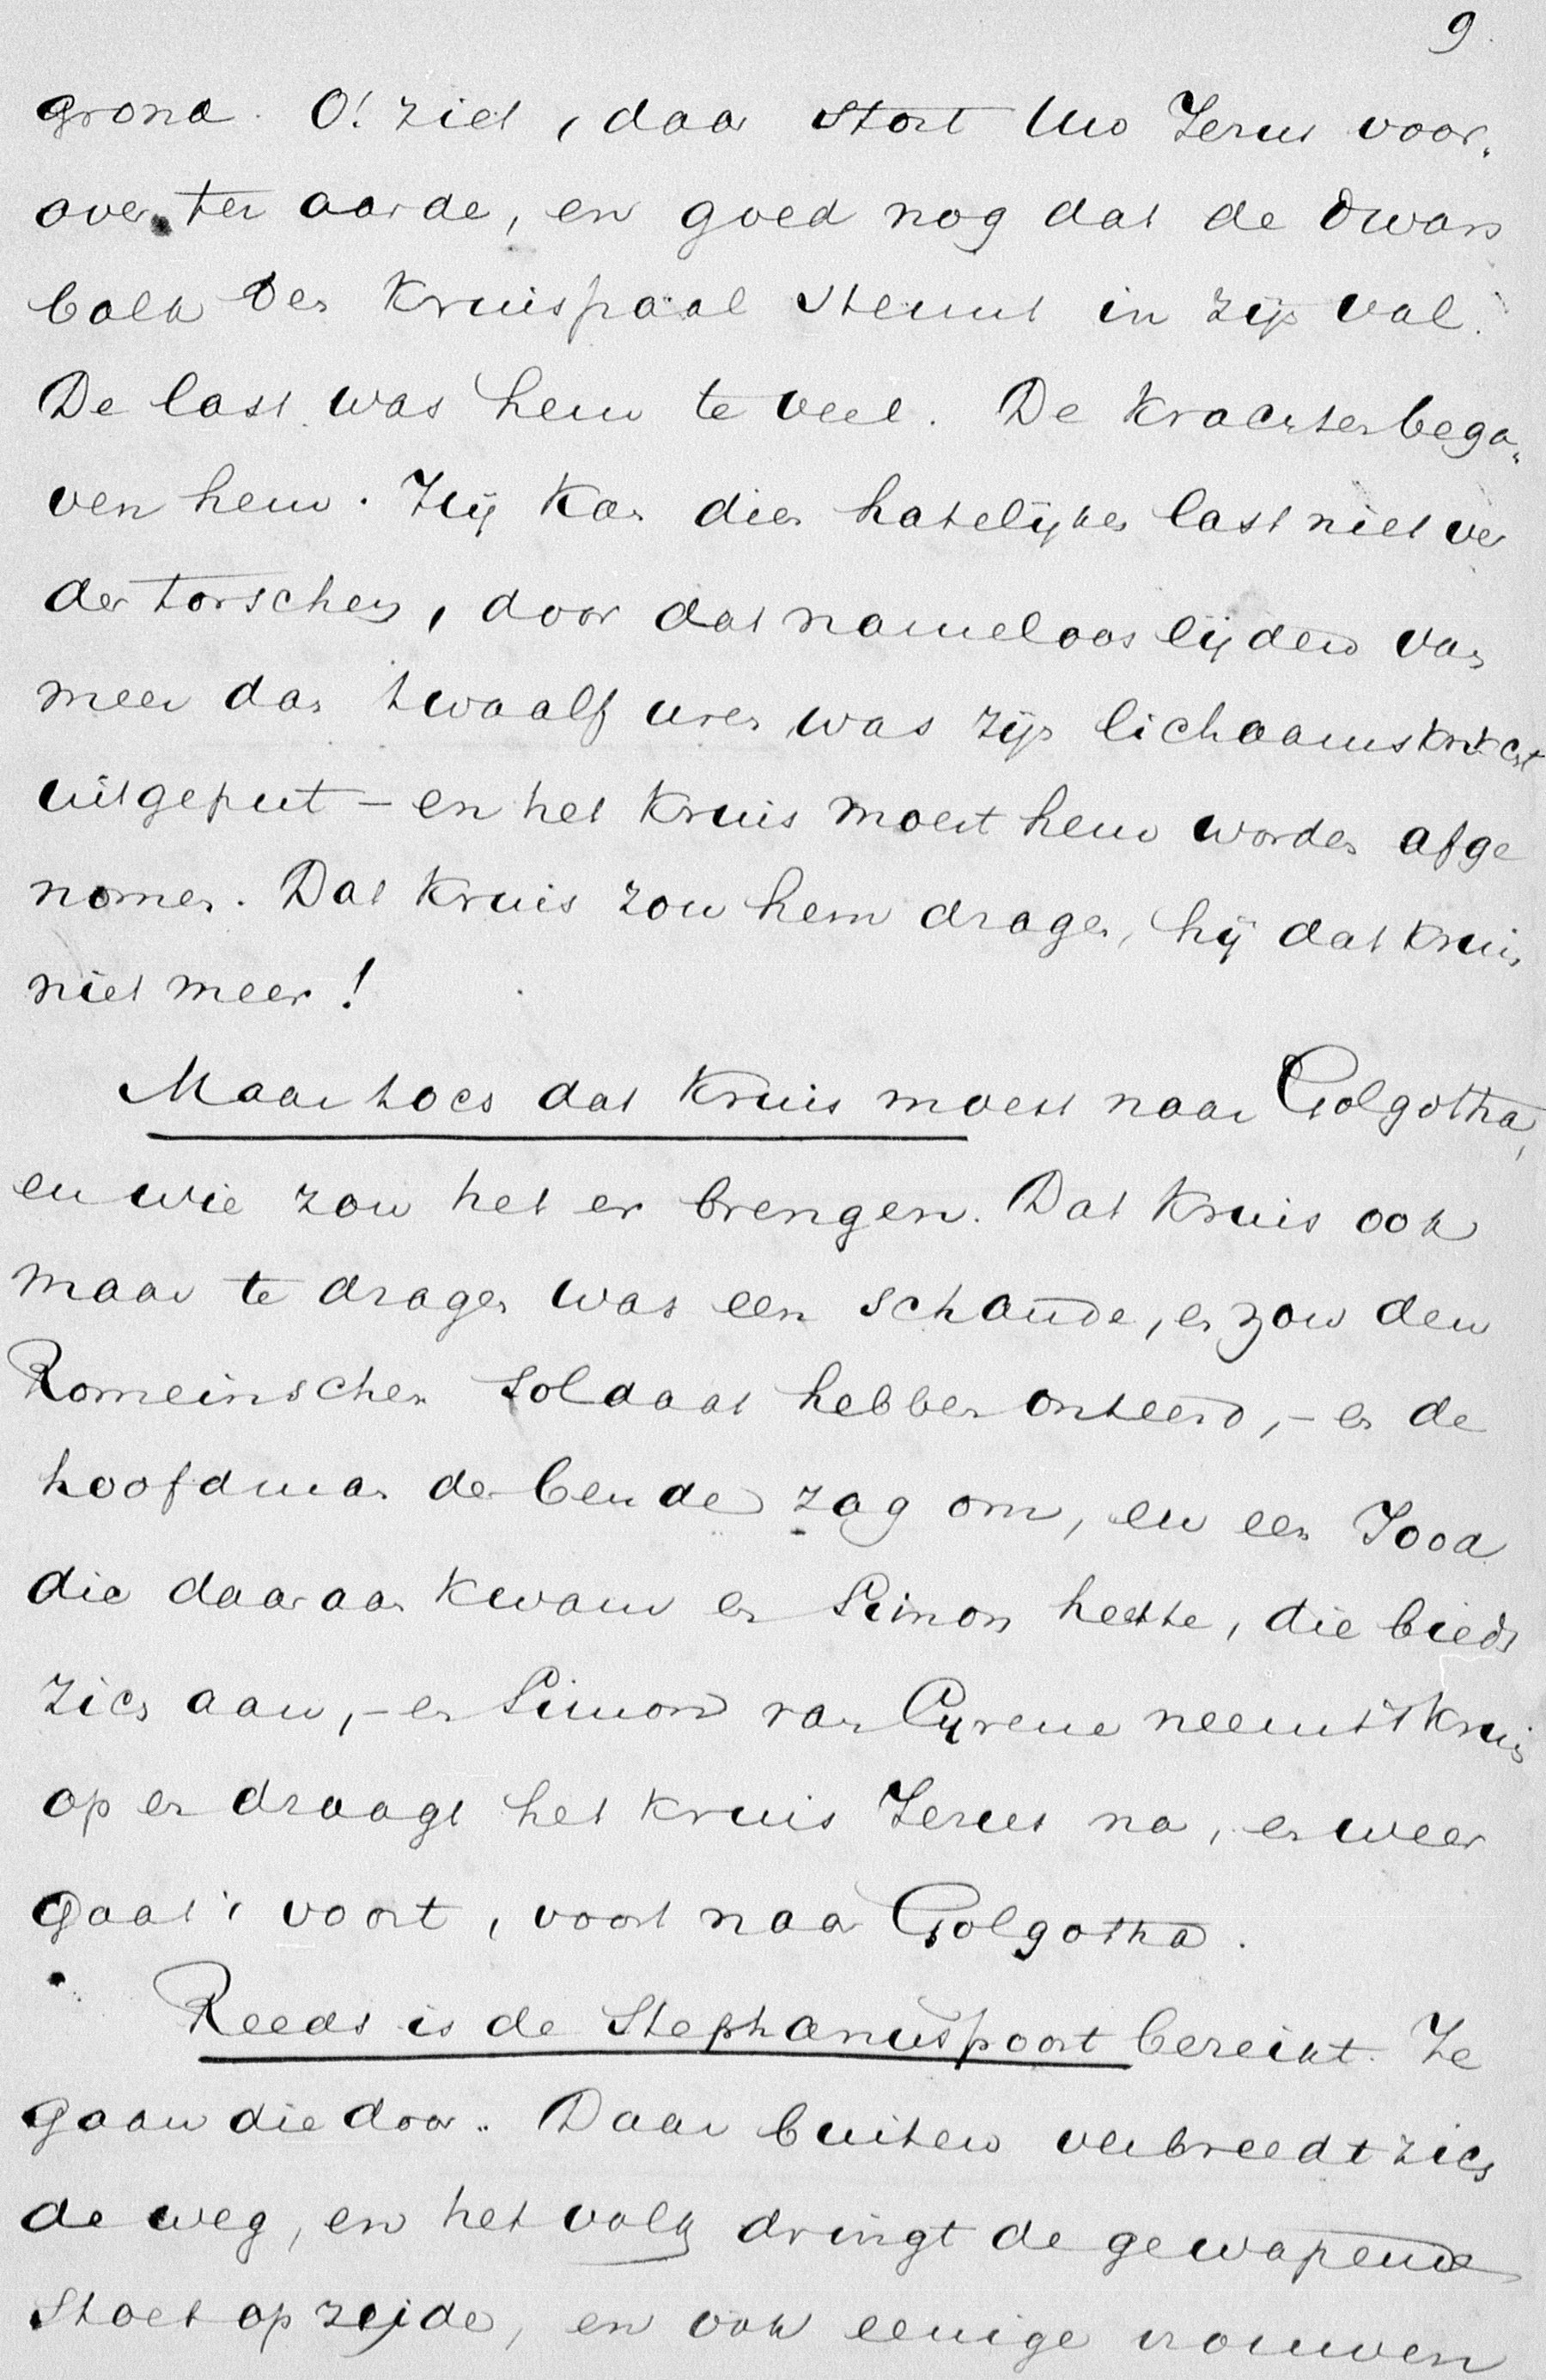 9.
grond. O! ziet, daar stort Uw Jezus voor-
over ter aarde, en goed nog dat de dwars
balk der kruispaal steunt in zijn val.
De last was hem te veel. De krachten bega-
ven hem. Hij kan dien hatelijken last niet ver
der torschen, door dat nameloos lijden van
meer dan twaalf uren was zijn lichaamskracht
uitgeput – en het kruis moest hem worden afge
nomen. Dat kruis zou hem dragen, hij dat kruis
niet meer!
Maar toch dat kruis moest naar Golgotha,
en wie zou het er brengen. Dat kruis ook
maar te dragen was een schande, en zou den
Romeinschen soldaat hebben onteerd, – en de
hoofdman der bende zag om, en een Jood
die daar aan kwam en Simon heette, die biedt
zich aan, – en Simon van Cyrene neemt 't kruis
op en draagt het kruis Jezus na, en weer
gaat 't voort, voort naar Golgotha.
Reeds is de Stephanuspoort bereikt. Ze
gaan die door. Daar buiten verbreedt zich
de weg, en het volk dringt de gewapende
stoet op zijde, en ook eenige vrouwen